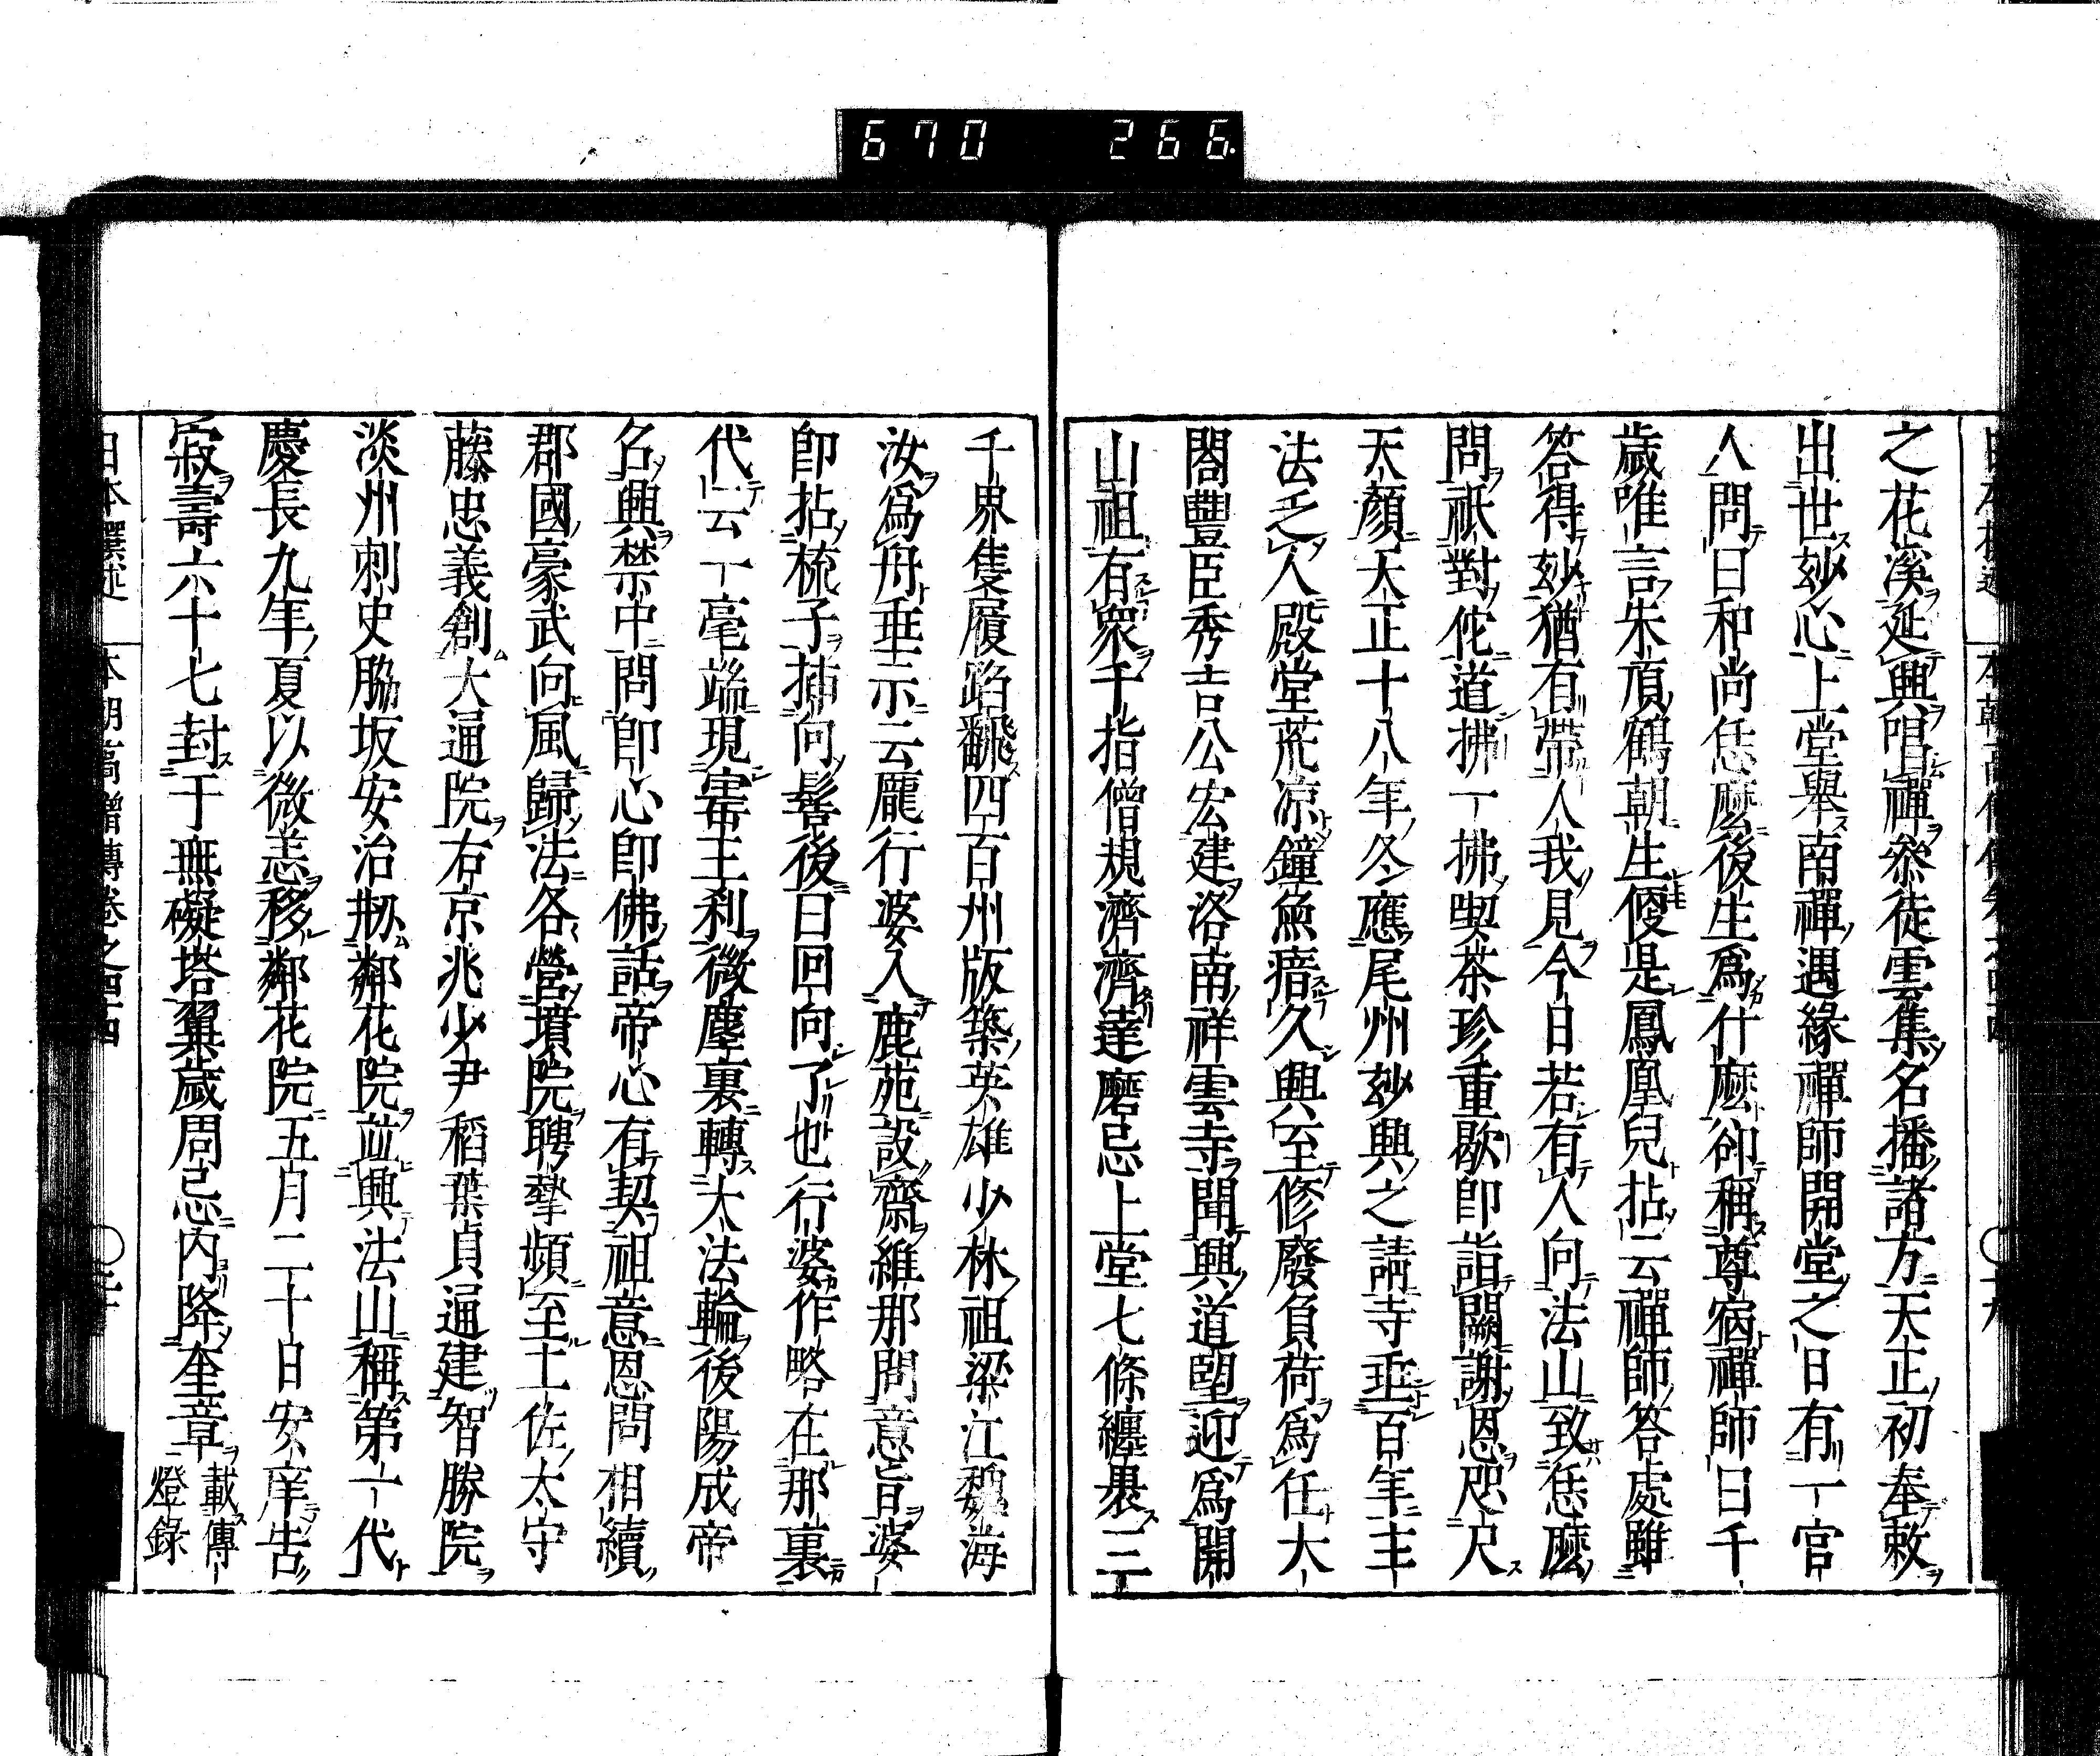 670 266.
之花溪延興唱禪參徒雲集名播諸方天正初奉敕
出世玅心上堂舉南禪遇緣禪師開堂之日有一官
人問曰和尚恁麼後生爲什麼卻稱尊宿禪師曰千
歲唯言朱頂鶴朝生便是鳳凰兒拈云禪師答處雖
答得玅猶有帶人我見今日若有人向法山致恁麼
問祇對佗道拂一拂喫茶珍重歇即詣闕謝恩咫尺
天顏天正十八年冬應尾州玅興之請寺垂百年主
法乏人殿堂荒凉鐘魚瘖久興至修廢負荷爲任太
閤豐臣秀吉公宏建洛南祥雲寺聞興道望迎爲開
山祖有衆千指僧規濟濟達磨忌上堂七條纏褁三
千界隻履踏翻四百州版築英雄少林祖梁江魏海
汝爲舟垂示云龐行婆入鹿苑設齋維那問意旨婆
即拈梳子插向髻後曰回向了也行婆作略在那裏
代云一毫端現寶王刹微塵裏轉大法輪後陽成帝
名興禁中問即心即佛話帝心有契祖意恩問相續
郡國豪武向風歸法各營墳院聘摯頻至土佐太守
藤忠義創大通院右京兆少尹稻葉貞通建智勝院
淡州刺史脇坂安治剏鄰花院竝興法山稱第一代
慶長九年夏以微恙移鄰花院五月二十日安庠告
寂壽六十七封于無礙塔翼歲周忌內降奎章載傳
燈錄
日本撰述 本朝高僧傳卷之四十四